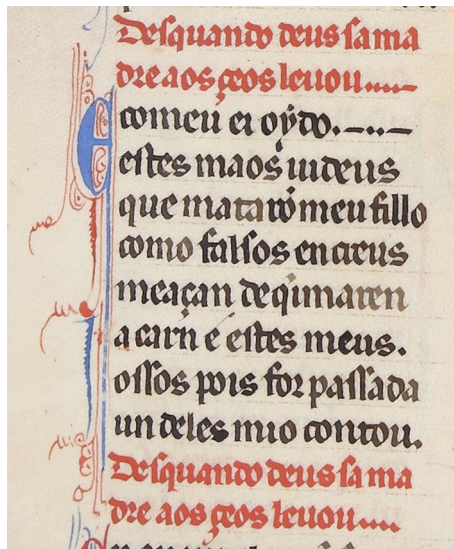 Desquando deus sa ma
dre aos çeos leuou.
E comeu ei oydo.
estes maos iudeus
que mataró meu fillo
como falsos encreus
meaçan de q̇imaren
a carn e estes meus.
ossos pois for passada
un deles mio contou.
Desquando deus sa ma
dre aos çeos leuou.